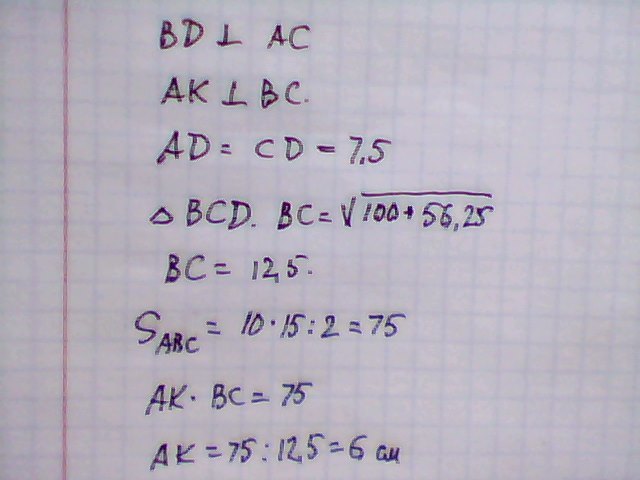 BD ⊥ AC
AK ⊥ BC.
AD = CD = 7,5
△ BCD. BC = √100 + 56,25
BC = 12,5.
S_ABC = 10 · 15 : 2 = 75
AK · BC = 75
AK = 75 : 12,5 = 6 см